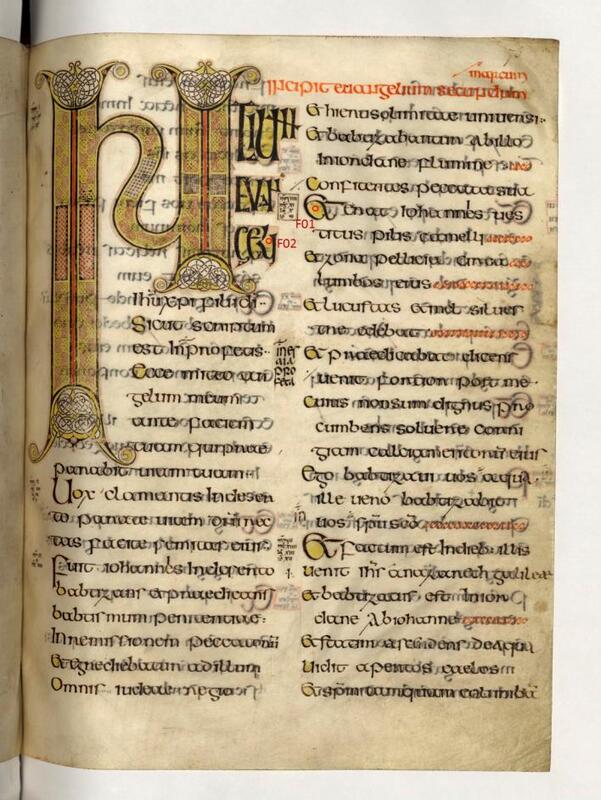 Incipit euangelium secundum
marcum
INITI
UM
EUAN
GELII
F01
F02
Ihu xpi fili di
Sicut scriptum
est in profetis
in es
aia
pro
feta
Ecce mitto an
gelum meum
ante faciem
tuam qui prae
parabit uiam tuam
Uox clamantis in deser
to parate uiam dni rec
tas facite semitas eius
Fuit iohannes in deserto
babtizans et praedicans
babtismum penitentiae
In remissionem peccatorum
Et egrediebatur ad illum
Omnis iudeae regio
Et hierusolimitae uniuersi
Et babtizabantur ab illo
In iordane flumine
Confitentes peccata sua
Et erat iohannes ues
titus pilis camelli
et zona pellicia circa
lumbos eius
et lucustas et mel silues
tre edebat
Et praedicabat dicens
uenit fortior post me
cuius non sum dignus pro
cumbens soluere corri
giam calciamentorum eius
Ego babtizaui uos aqua
ille uero babtizabit
uos spu sco
Et factum est in diebus illis
uenit ihs a nazareth galileae
et babtizatus est in ior
dane ab iohanne
Et statim ascendens de aqua
Uidit apertos caelos
Et spm tamquam columba